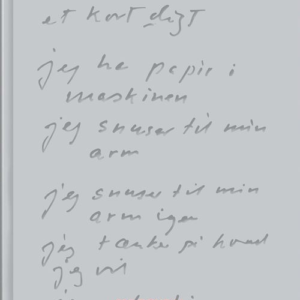 et kort digt
jeg ha papir i
maskinen
jeg snuser til min
arm
jeg snuser til min
arm igen
jeg tænker på hvad
jeg vil